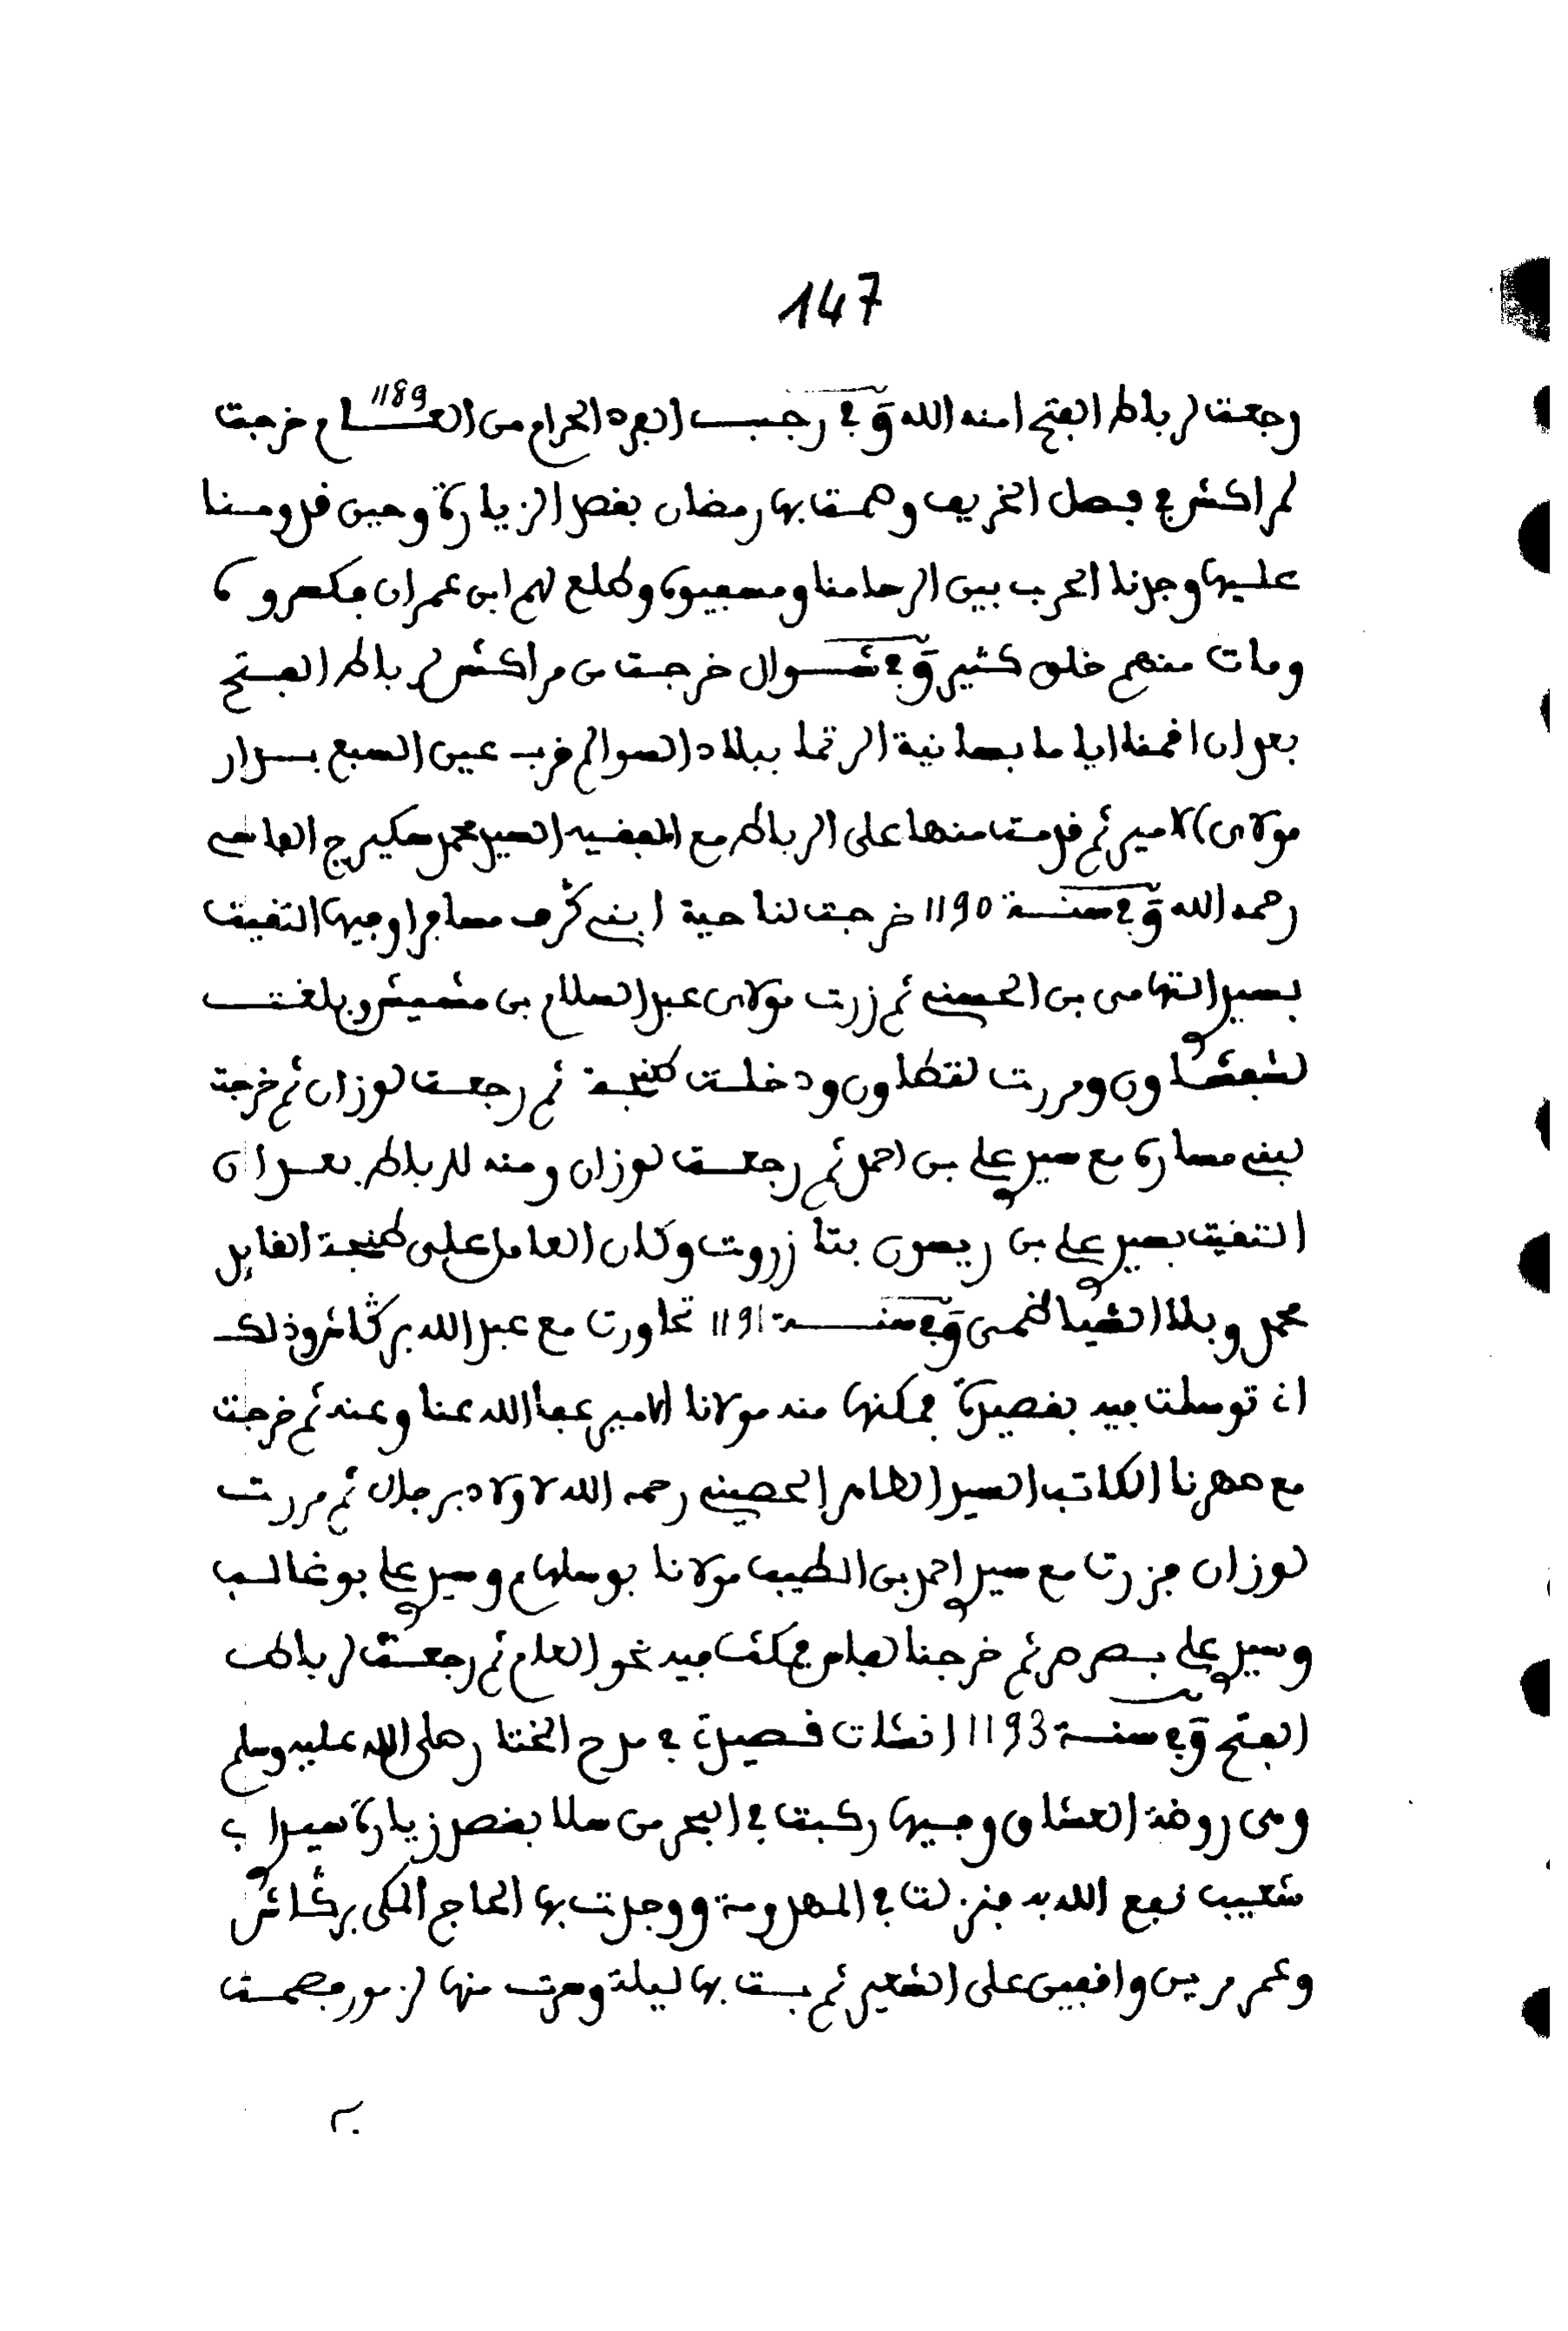 147
رجعت لرباط الفتح امنه الله وفي رجب الفرد الحرام من العام 1189 خرجت
لمراكش في فصل الخريف وصمت بها رمضان بقصد الزيارة وحين قدومنا
عليها وجدنا الحرب بين الرحامنا ومسفيوة وطلع لهم ابن عمران فكسروه
ومات منهم خلق كثير وفي شوال خرجت من مراكش لرباط الفتح
بعد ان اقمنا اياما بسانية الرتما ببلاد السوالم قرب عين السبع بدار
مولاي الامير ثم قدمت منها على الرباط مع الفقيه السيد محمد سكيرج الفاسي
رحمه الله وفي سنة 1190 خرجت لناحية ابني ڭرف مسافرا وفيها التقيت
بسيد التهامي بن الحسني ثم زرت مولاي عبد السلام بن مشيش وبلغت
لشفشاون ومررت لتطاون ودخلت طنجة ثم رجعت لوزان ثم خرجت
لبني مسارة مع سيدي علي بن احمد ثم رجعت لوزان ومنه للرباط بعد ان
التقيت بسيدي علي بن ريسون بتازروت وكان العامل على طنجة القايد
محمد وبلا الشياظمي وفي سنة 1191 تحاورت مع عبد الله برڭاش وذلك
ان توسلت فيه بقصيدة فمكنها منه مولانا الامير عفا الله عنا وعنه ثم خرجت
مع صهرنا الكاتب السيد الطاهر الحصيني رحمه الله لاولاد برجال ثم مررت
لوزان فزرت مع سيدي احمد بن الطيب مولانا بوسلهام وسيدي علي بوغالب
وسيدي علي بصرصر ثم خرجنا لفاس فمكثت فيه نحو العام ثم رجعت لرباط
الفتح وفي سنة 1193 انشات قصيدة في مدح المختار صلى الله عليه وسلم
ومن روضة العشاق وفيها ركبت في البحر من سلا بقصد زيارة سيدي ابي
شعيب نفع الله به فنزلت في المهدومة ووجدت بها الحاج المكي برڭاش
وعمر مريس واقفين على الشعير ثم بت بها ليلة وسرت منها لازمور فصمت